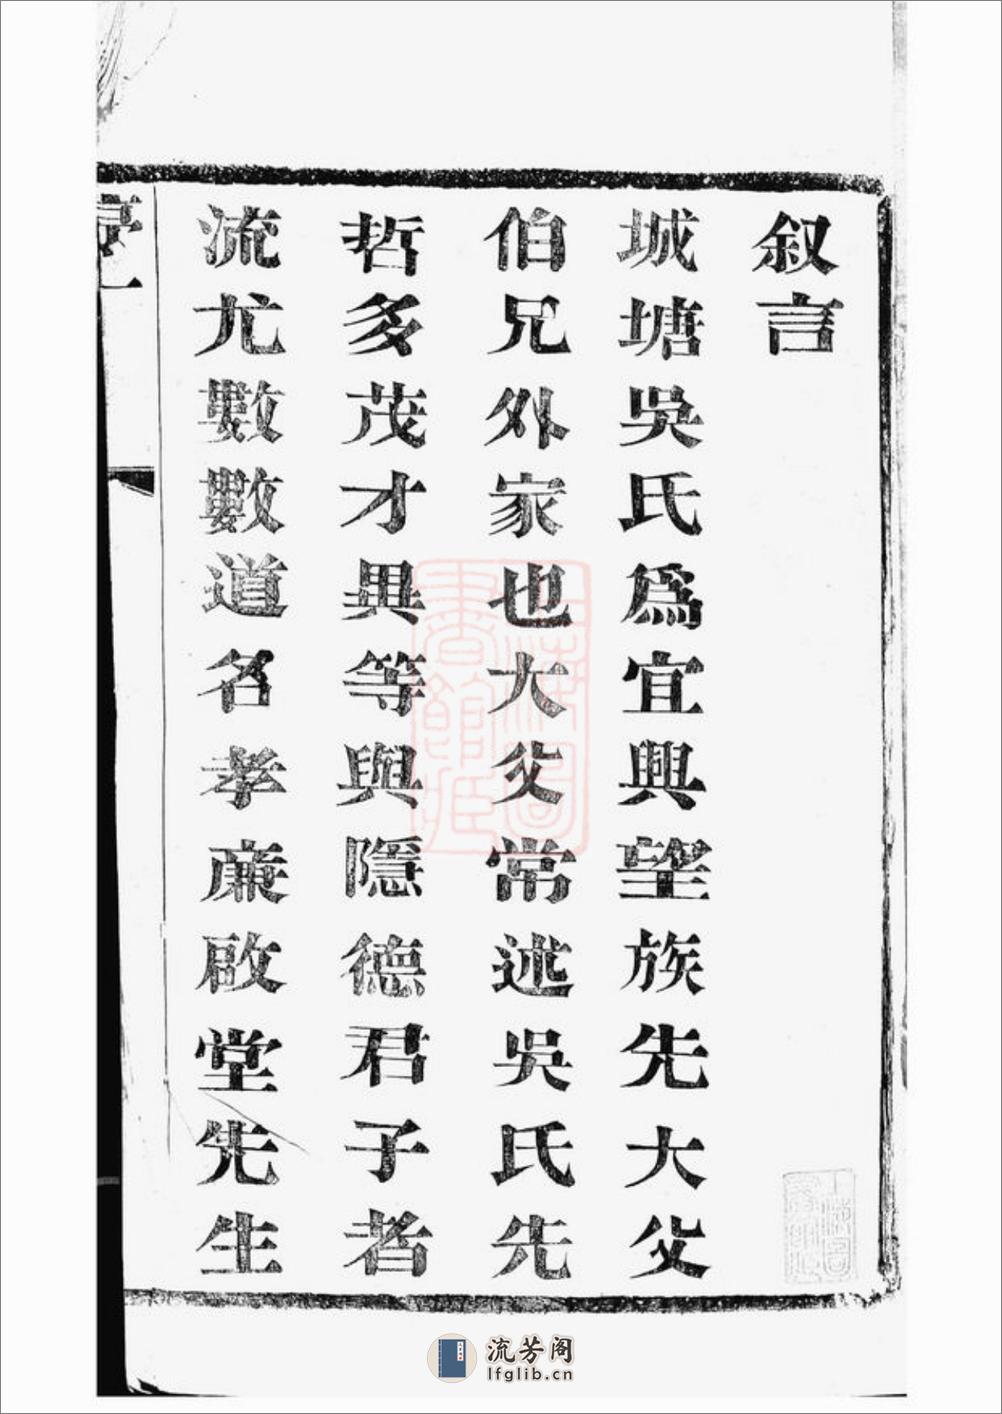 叙言
城塘吳氏爲宜興望族先大父
伯兄外家也大父常述吳氏先
哲多茂才異等與隱德君子者
流尤數數道名孝廉啟堂先生
流芳阁
lfglib.cn